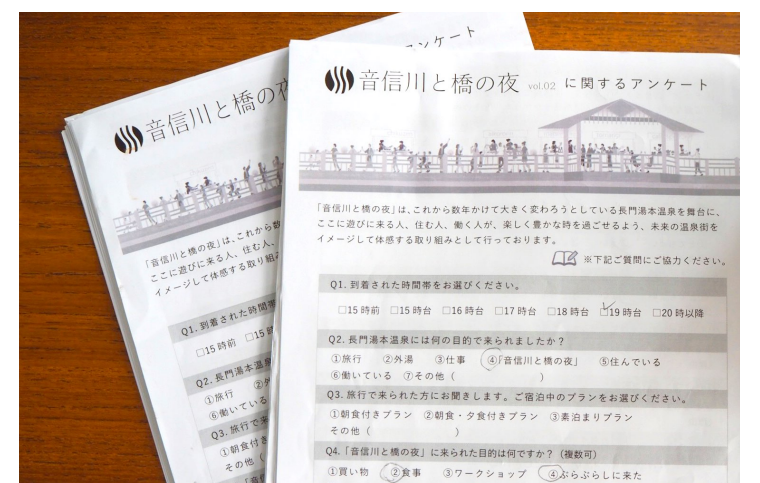 ンケート
音信川と橋の
「音信川と橋の夜」は、これから数
ここに遊びに来る人、住む人、
イメージして体感する取り組み
Q1. 到着された時間帯
□15時前 □15時
Q2. 長門湯本温泉
①旅行
⑥働いている
Q3. 旅行で来
①朝食付き
その他（
音信川と橋の夜 vol.02 に関するアンケート
「音信川と橋の夜」は、これから数年かけて大きく変わろうとしている長門湯本温泉を舞台に、
ここに遊びに来る人、住む人、働く人が、楽しく豊かな時を過ごせるよう、未来の温泉街を
イメージして体感する取り組みとして行っております。
※下記ご質問にご協力ください。
Q1. 到着された時間帯をお選びください。
□15時前 □15時台 □16時台 □17時台 □18時台 □19時台 □20時以降
Q2. 長門湯本温泉には何の目的で来られましたか？
①旅行 ②外湯 ③仕事 ④「音信川と橋の夜」 ⑤住んでいる
⑥働いている ⑦その他（ ）
Q3. 旅行で来られた方にお聞きします。ご宿泊中のプランをお選びください。
①朝食付きプラン ②朝食・夕食付きプラン ③素泊まりプラン
その他（ ）
Q4.「音信川と橋の夜」に来られた目的は何ですか？（複数可）
①買い物 ②食事 ③ワークショップ ④ぶらぶらしに来た